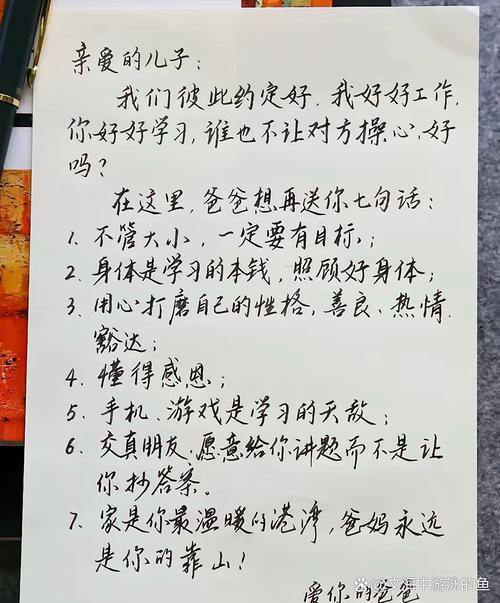 亲爱的儿子:
我们彼此约定好.我好好工作,
你好好学习,谁也不让对方操心,好
吗?
在这里,爸爸想再送你七句话:
1、不管大小,一定要有目标;
2、身体是学习的本钱,照顾好身体;
3、用心打磨自己的性格,善良、热情、
豁达;
4、懂得感恩;
5、手机、游戏是学习的天敌;
6、交真朋友,愿意给你讲题而不是让
你抄答案。
7、家是你最温暖的港湾,爸妈永远
是你的靠山!
爱你的爸爸
@文海中游泳的鱼